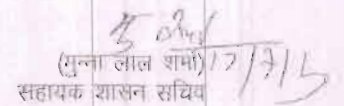 (मुन्ना लाल शर्मा) 17/7/15
सहायक शासन सचिव